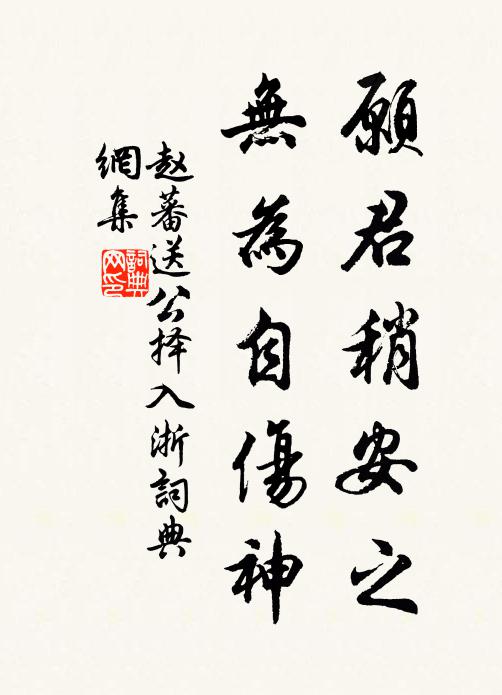 願君稍安之
無為自傷神
赵蕃送公择入浙詞典
網集
詞典
网印